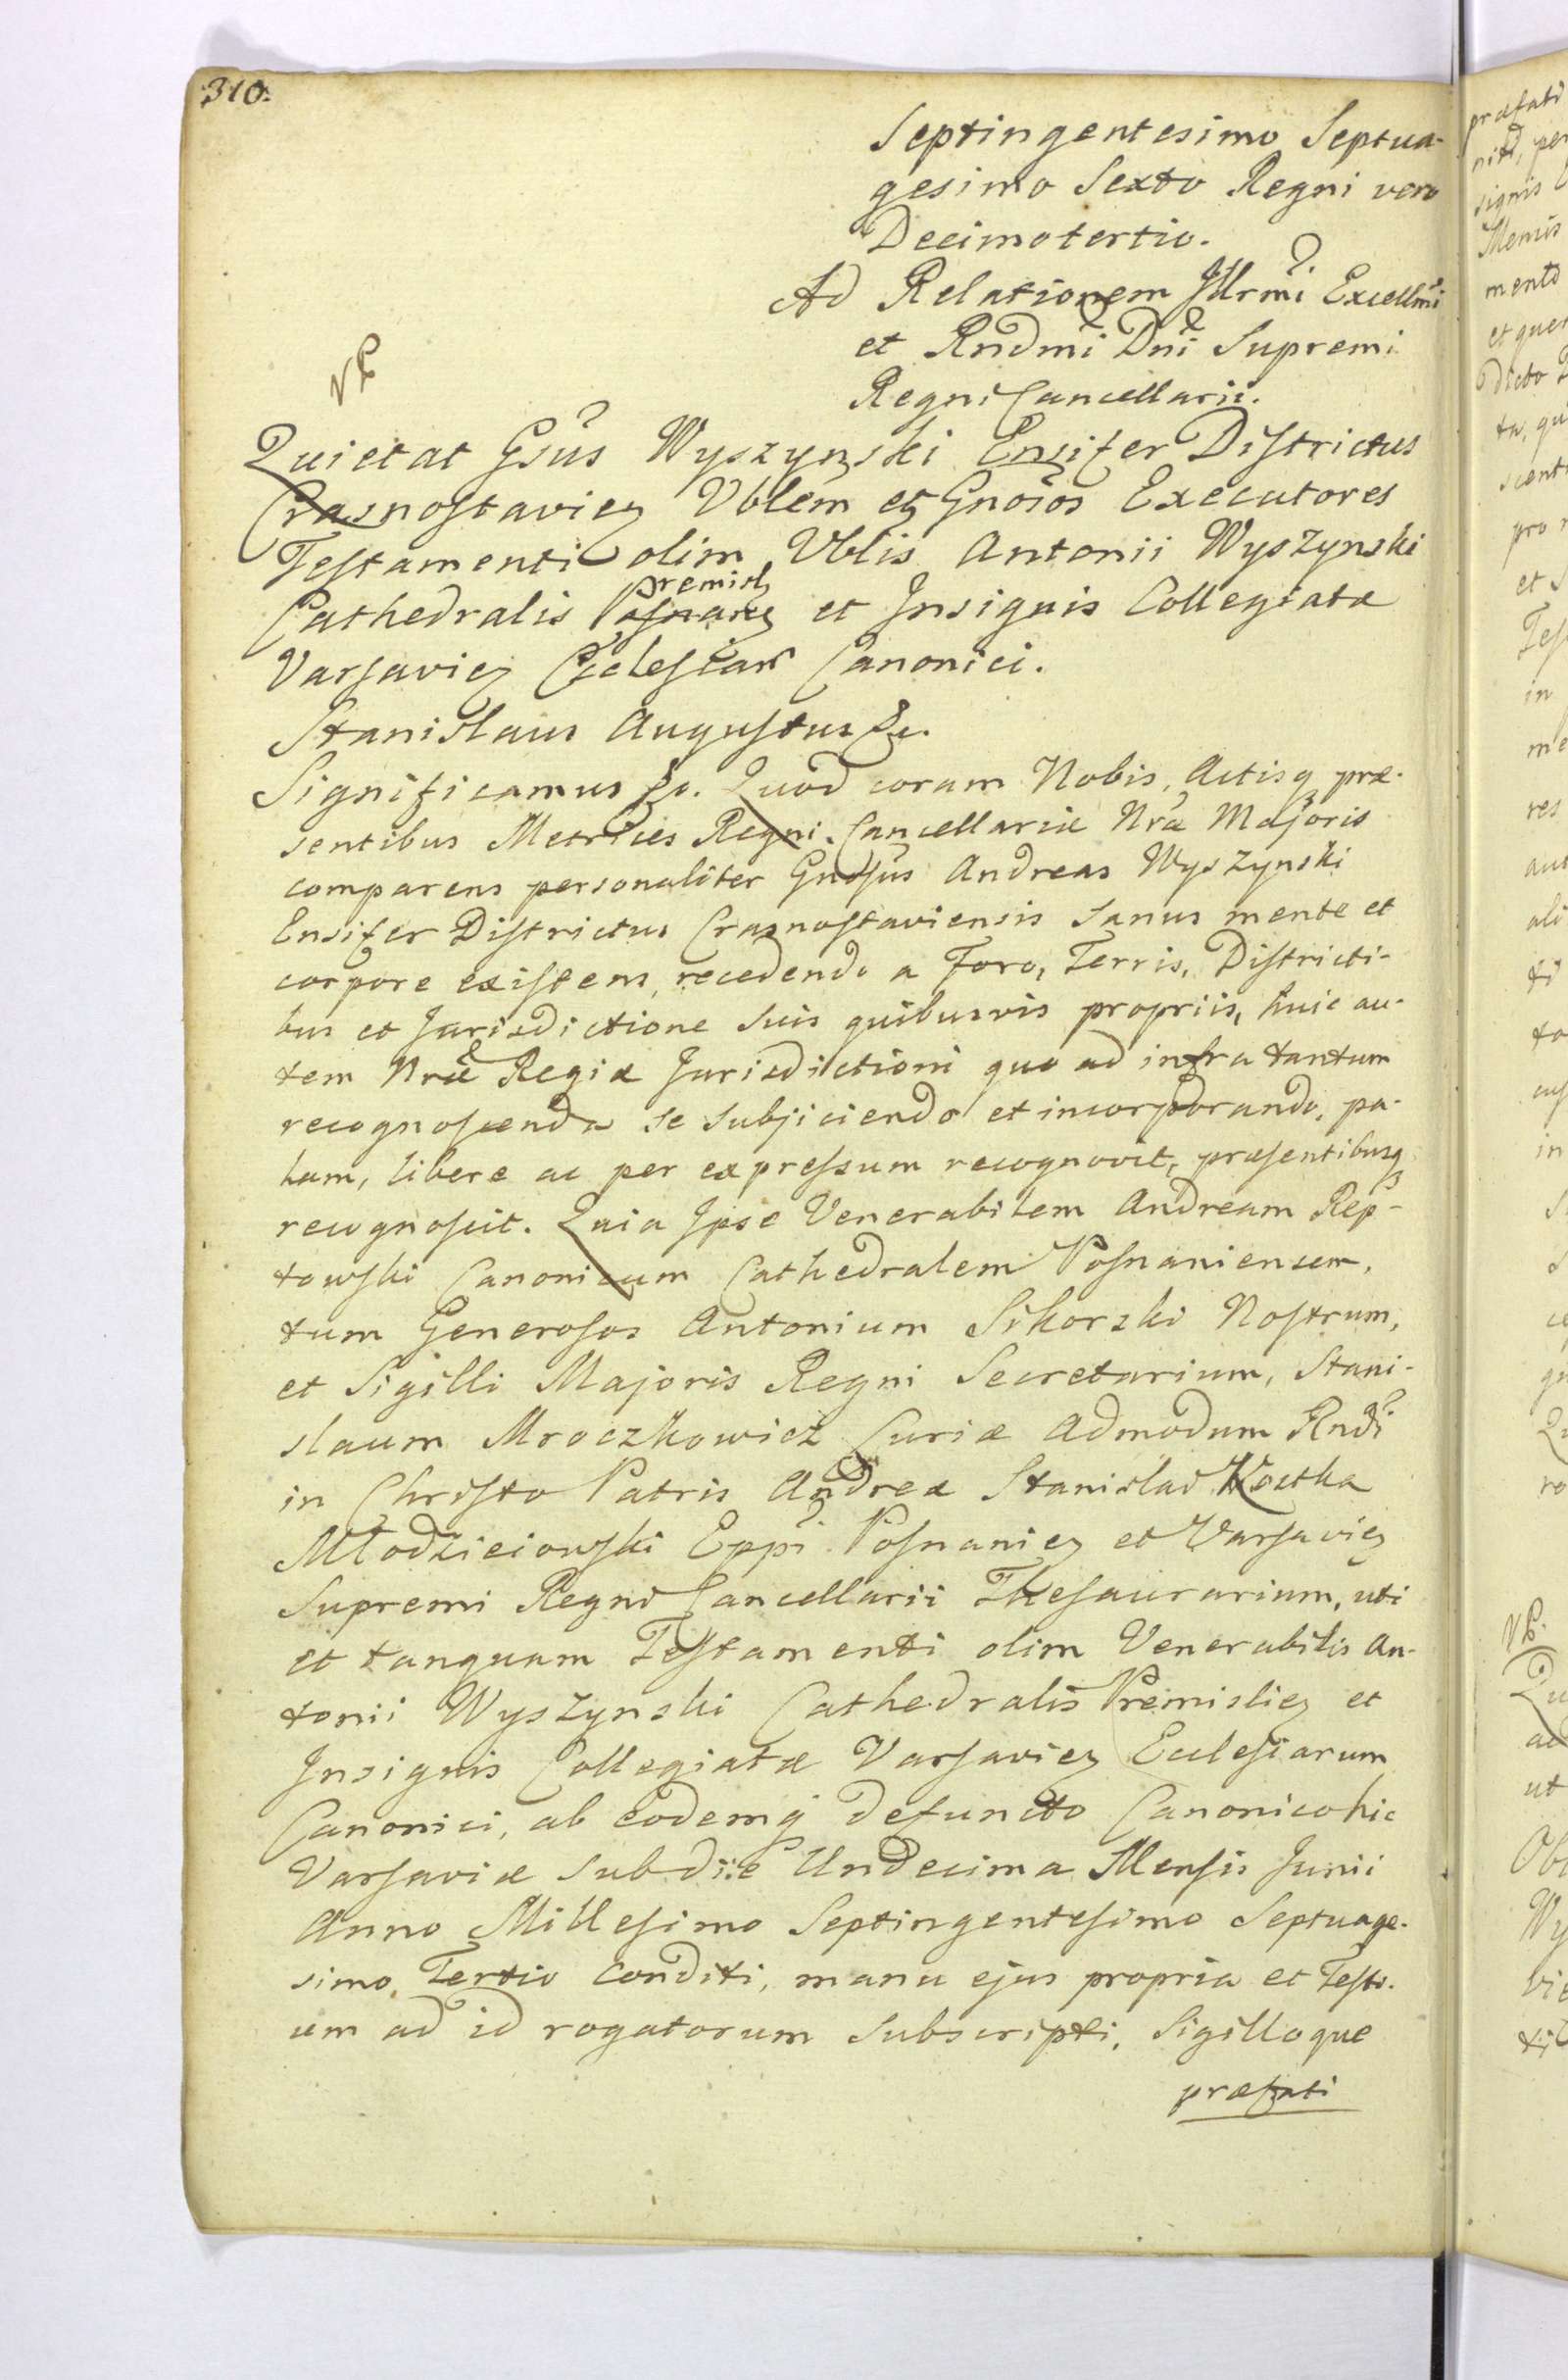 310.
Septingentesimo Septua-
gesimo Sexto Regni vero
Decimotertio.
Ad Relationem Illrmi Excellmi
et Rndmi Dni Supremi
Regni Cancellarii.
Quietat Gsus Wyszynski Ensifer Districtus
Crasnostavien Vblem et Gnosos Executores
Testamenti olim Vblis Antonii Wyszynski
Premisl
Cathedralis Posnanen et Insignis Collegiatæ
Varsavien Ecclesiar Canonici.
Stanislaus Augustus &c.
Significamus &c. Quod coram Nobis, Actisq præ-
sentibus Metrices Regni Cancellariæ Nræ Majoris
comparens personaliter Gnosus Andreas Wyszynski
Ensifer Districtus Crasnostaviensis Sanus mente et
corpore existens, recedendo a Foro, Terris, Districti-
bus et Jurisdictione Suis quibusvis propriis, huic au-
tem Nræ Regiæ Jurisdictioni quo ad infra tantum
recognoscenda se Subjiciendo et incorporando, pa-
lam, libere ac per expressum recognovit, præsentibusq
recognoscit. Quia Ipse Venerabilem Andream Rep-
towski Canonicum Cathedralem Posnaniensem,
tum Generosos Antonium Sikorski Nostrum,
et Sigilli Majoris Regni Secretarium, Stani-
slaum Mroczkowicz Curiæ Admodum Rndi
in Christo Patris Andreæ Stanislai Kostka
Młodzieiowski Eppi Posnanien et Varsavien
Supremi Regni Cancellarii Thesaurarium, uti
et tanquam Testamenti olim Venerabilis An-
tonii Wyszynski Cathedralis Premislien et
Insignis Collegiatæ Varsavien Ecclesiarum
Canonici, ab eodemq defuncto Canonico hic
Varsaviæ Sub die Undecima Mensis Junii
Anno Millesimo Septingentesimo Septuage-
simo Tertio Conditi, manu ejus propria et Testi-
um ad id rogatorum Subscripti, Sigilloque
præfati